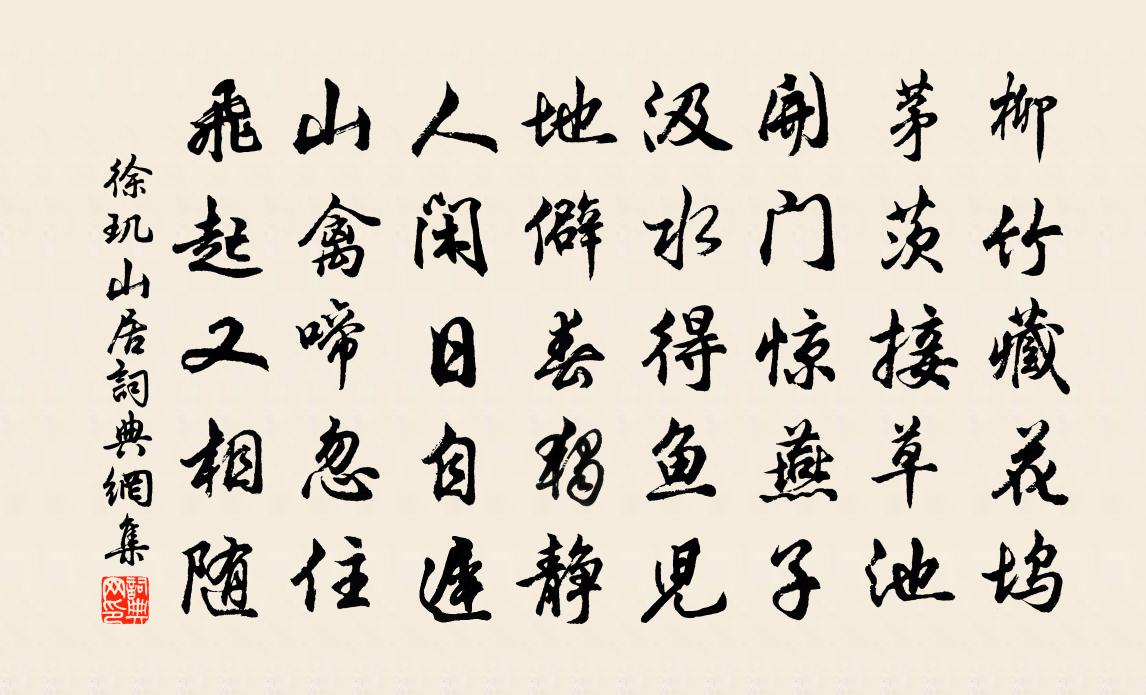 柳竹藏花坞
茅茨接草池
開门惊燕子
汲水得鱼兒
地僻春猶静
人闲日自遲
山禽啼忽住
飛起又相随
徐玑山居詞典網集
詞典网印